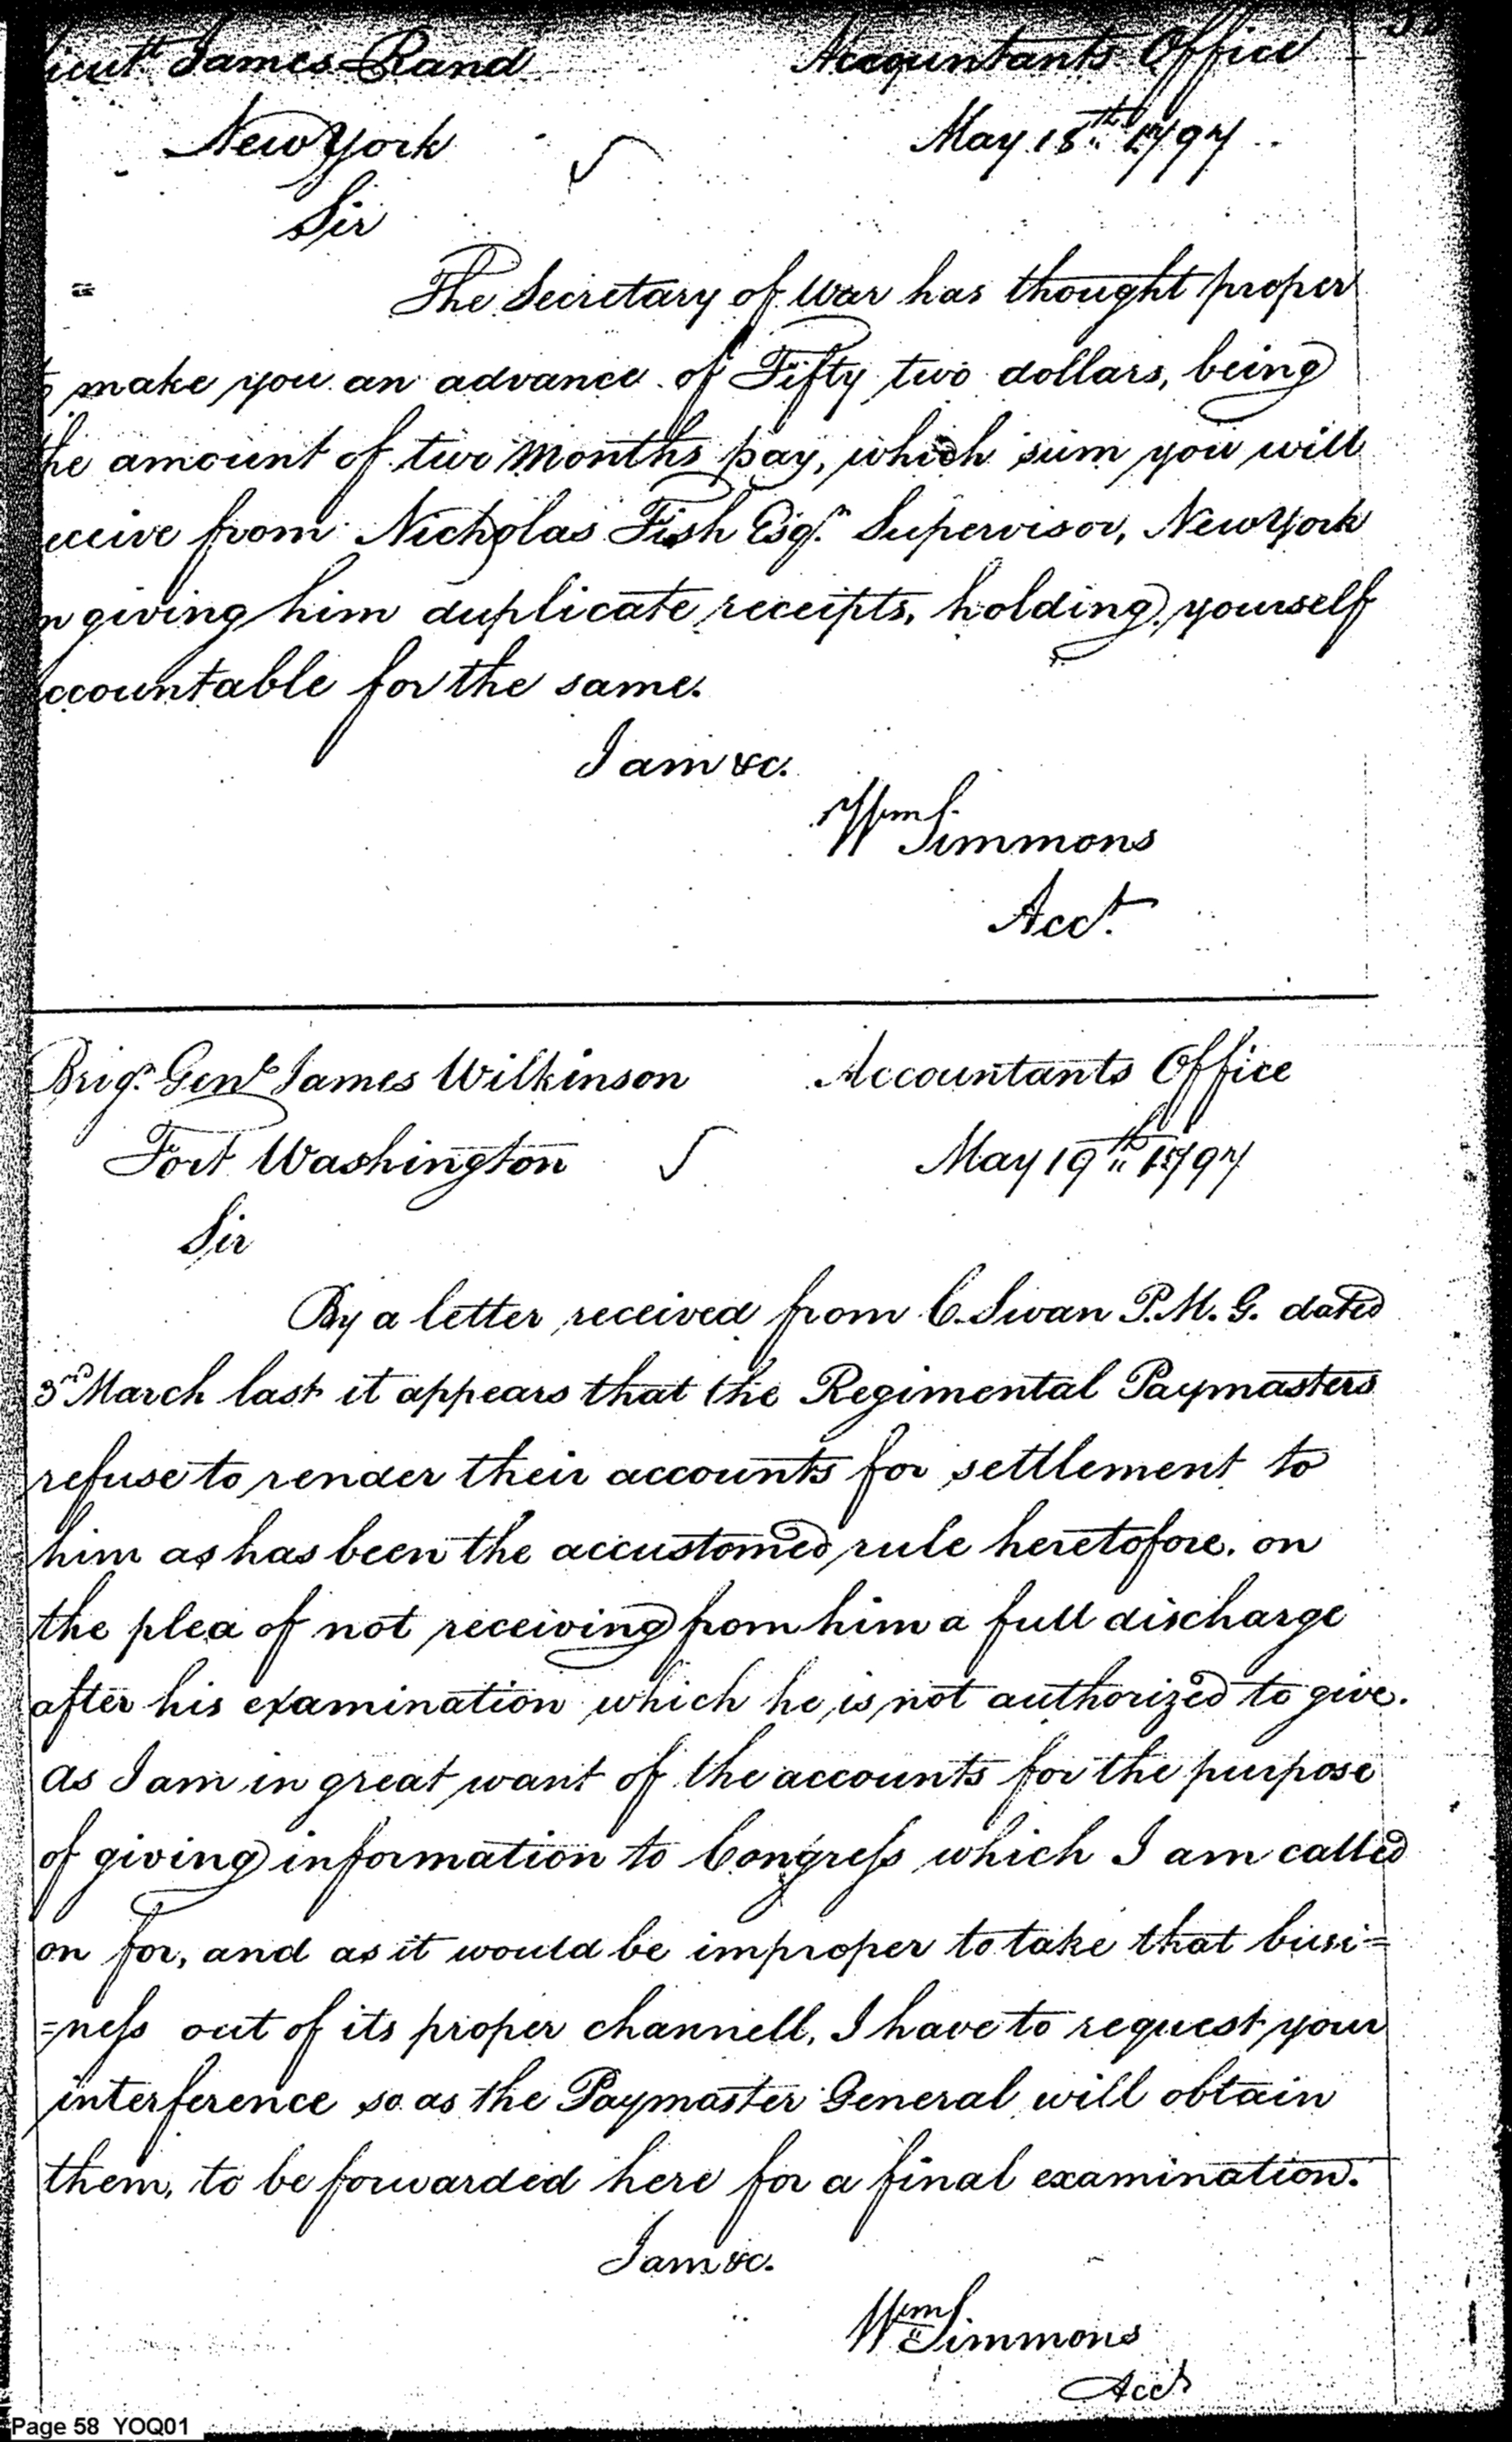 ieut.t James Rand Accountants Office
New York May 18th 1797
Sir
The Secretary of War has thought proper
make you an advance of Fifty two dollars, being
he amount of two months pay, which sum you will
eceive from Nicholas Fish Esqr. Supervisor, New York
n giving him duplicate receipts, holding yourself
ccountable for the same.
I am &c.
Wm Simmons
Acct.
Brigr. Genl James Wilkinson Accountants Office
Fort Washington May 19th 1797
Sir
By a letter received from C. Swan P.M.G. dated
3rd March last it appears that the Regimental Paymasters
refuse to render their accounts for settlement to
him as has been the accustomed rule heretofore. on
the plea of not receiving from him a full discharge
after his examination which he is not authorized to give.
as I am in great want of the accounts for the purpose
of giving information to Congress which I am called
on for, and as it would be improper to take that busi=
=ness out of its proper channell, I have to request your
interference so as the Paymaster General will obtain
them, to be forwarded here for a final examination.
I am &c.
Wm Simmons
Acct
Page 58 YOQ01